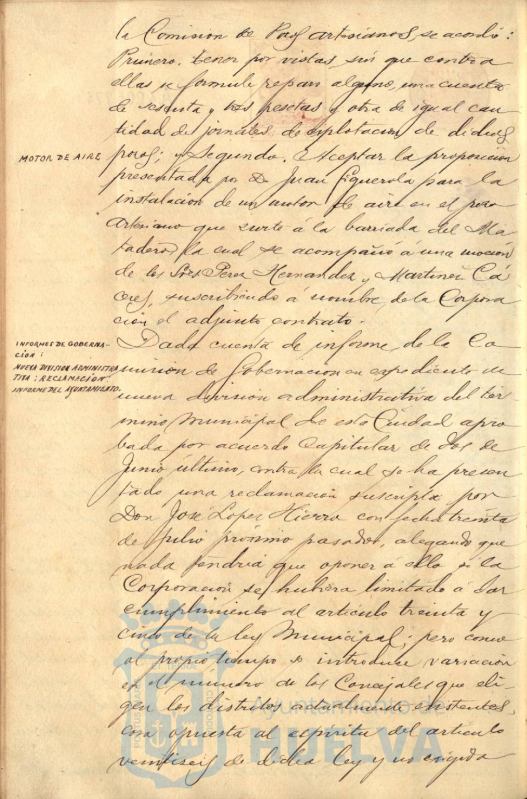 la Comision de Pozos artesianos, se acordó:
Primero. Tener por vistas sin que contra
ellas se formule reparo alguno, una cuenta
de sesenta y tres pesetas y otra de igual can-
tidad de jornales de esplotacion de dichos
pozos; y Segundo. Aceptar la proposicion
MOTOR DE AIRE
presentada por D. Juan Figuerola para la
instalacion de un motor de aire en el pozo
artesiano que surte á la barriada del Ma-
tadero, la cual se acompañó á una mocion
de los Sres Perez Hernandez y Martinez Cá-
ceres, suscribiendo á nombre de la Corpora-
cion el adjunto contrato.
INFORMES DE GOBERNA-
CIÓN:
NUEVA DIVISION ADMINISTRA-
TIVA; RECLAMACION
INFORME DEL AYUNTAMIENTO.
Dada cuenta de informe de la Co-
mision de Gobernacion en espediente de
nueva division administrativa del tér-
mino Municipal de esta Ciudad apro-
bada por acuerdo Capitular de dos de
Junio último, contra la cual se ha presen-
tado una reclamacion suscripta por
Don José Lopez Hierro con fecha treinta
de Julio próximo pasado, alegando que
nada tendria que oponer á ello si la
Corporacion se hubiera limitado á dar
cumplimiento al articulo treinta y
cinco de la ley Municipal; pero como
al propio tiempo se introduce variacion
en el número de los Concejales que eli-
gen los distritos actualmente existentes,
cosa opuesta al espíritu del articulo
veintiseis de dicha ley y no exigida
Ayuntamiento de
HUELVA